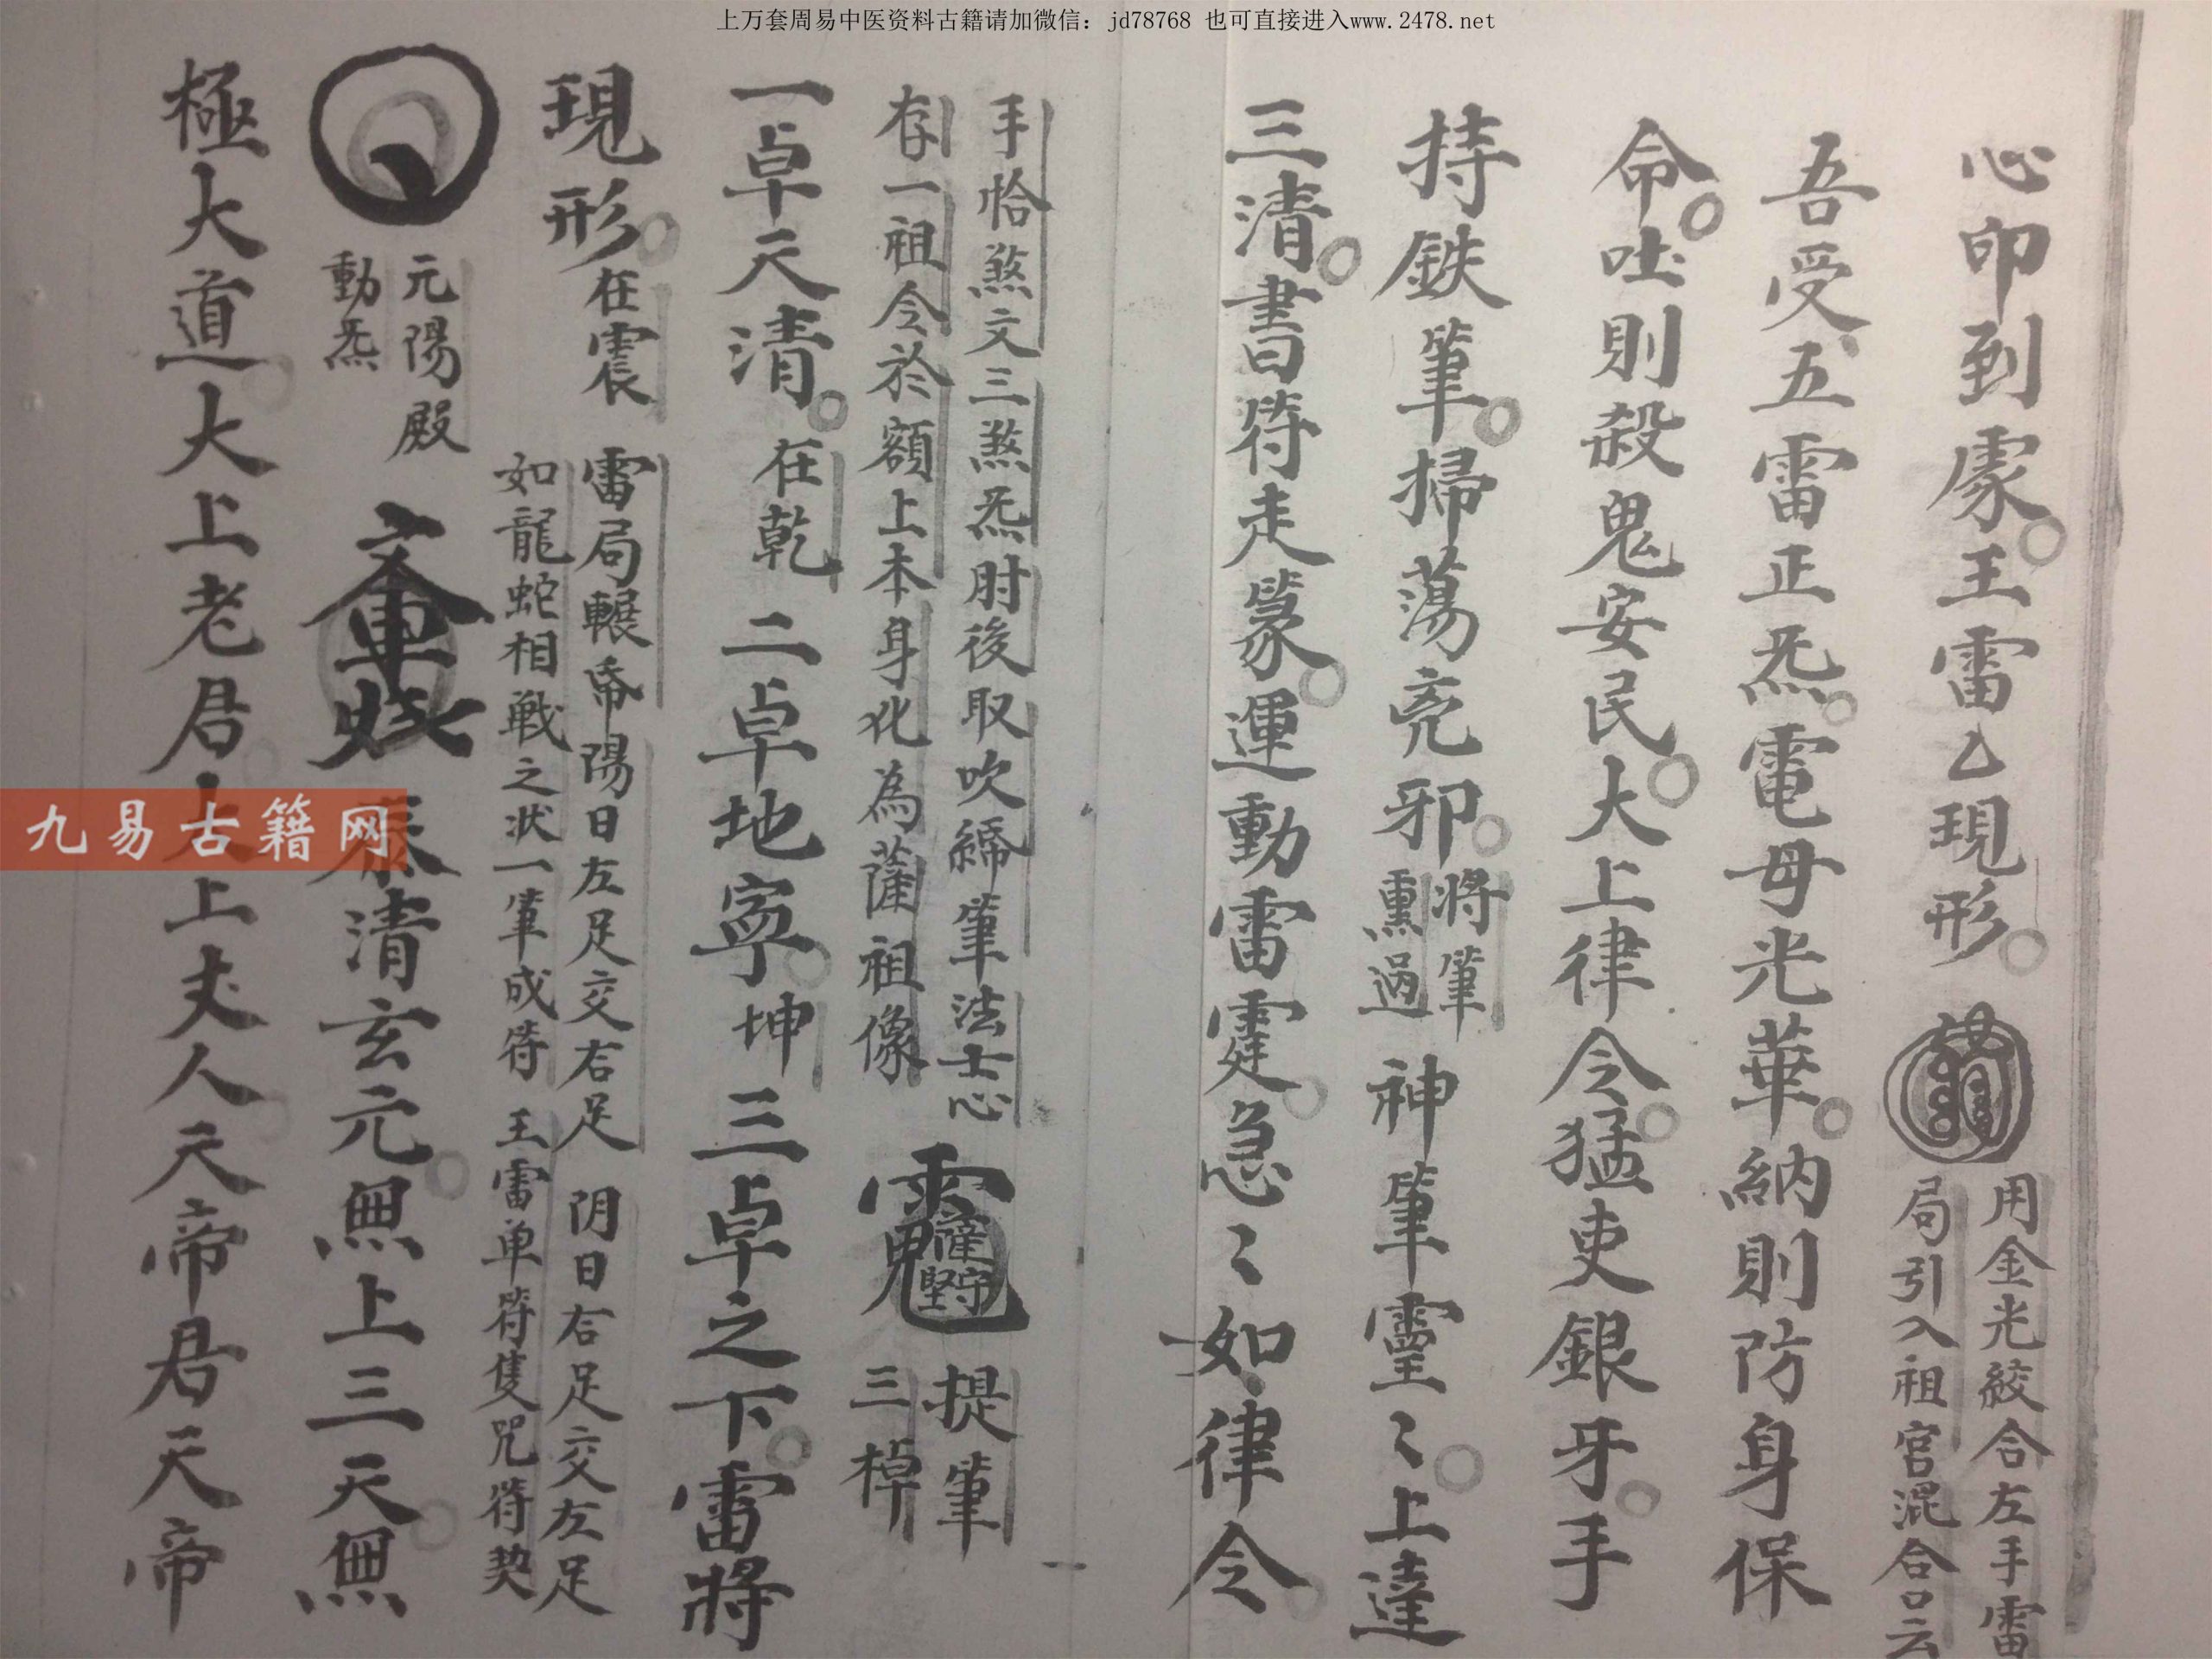 上万套周易中医资料古籍请加微信：jd78768 也可直接进入www.2478.net
心印到處王雷乙現形
用金光絞合左手雷
局引入祖宮混合口云
吾受五雷正炁電母光華納則防身保
命吐則殺鬼安民大上律令猛吏銀牙手
持鉄筆掃蕩兇邪
將筆
熏過
神筆靈〻上達
三清書符走篆運動雷霆急〻如律令
手恰煞文三煞炁肘後取吹締筆法士心
存一祖令於額上本身化為薩祖像
提筆
三棹
一卓天清在乾二卓地寧坤三卓之下雷將
現形在震
雷局輾帋陽日左足交右足 阴日右足交左足
如龍蛇相戰之状一筆成符 王雷单符隻咒符契
元陽殿
動炁
泰清玄元無上三天無
極大道大上老君大上丈人天帝君天帝
九易古籍网